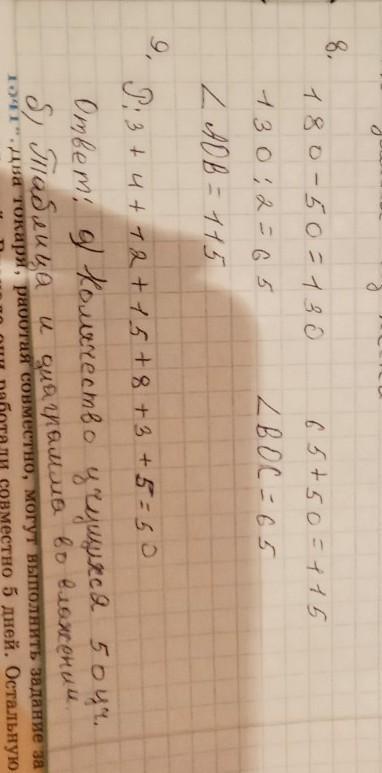 8.
180-50=130 65+50=115
130:2=65 ∠BOC=65
∠AOB=115
9.
Р: 3+4+12+15+8+3+5=50
Ответ: а) Количество учущихся 50 уч.
б) Таблица и диаграмма во вложении.
1041 . Два токаря, работая совместно, могут выполнить задание за
они работали совместно 5 дней. Остальную